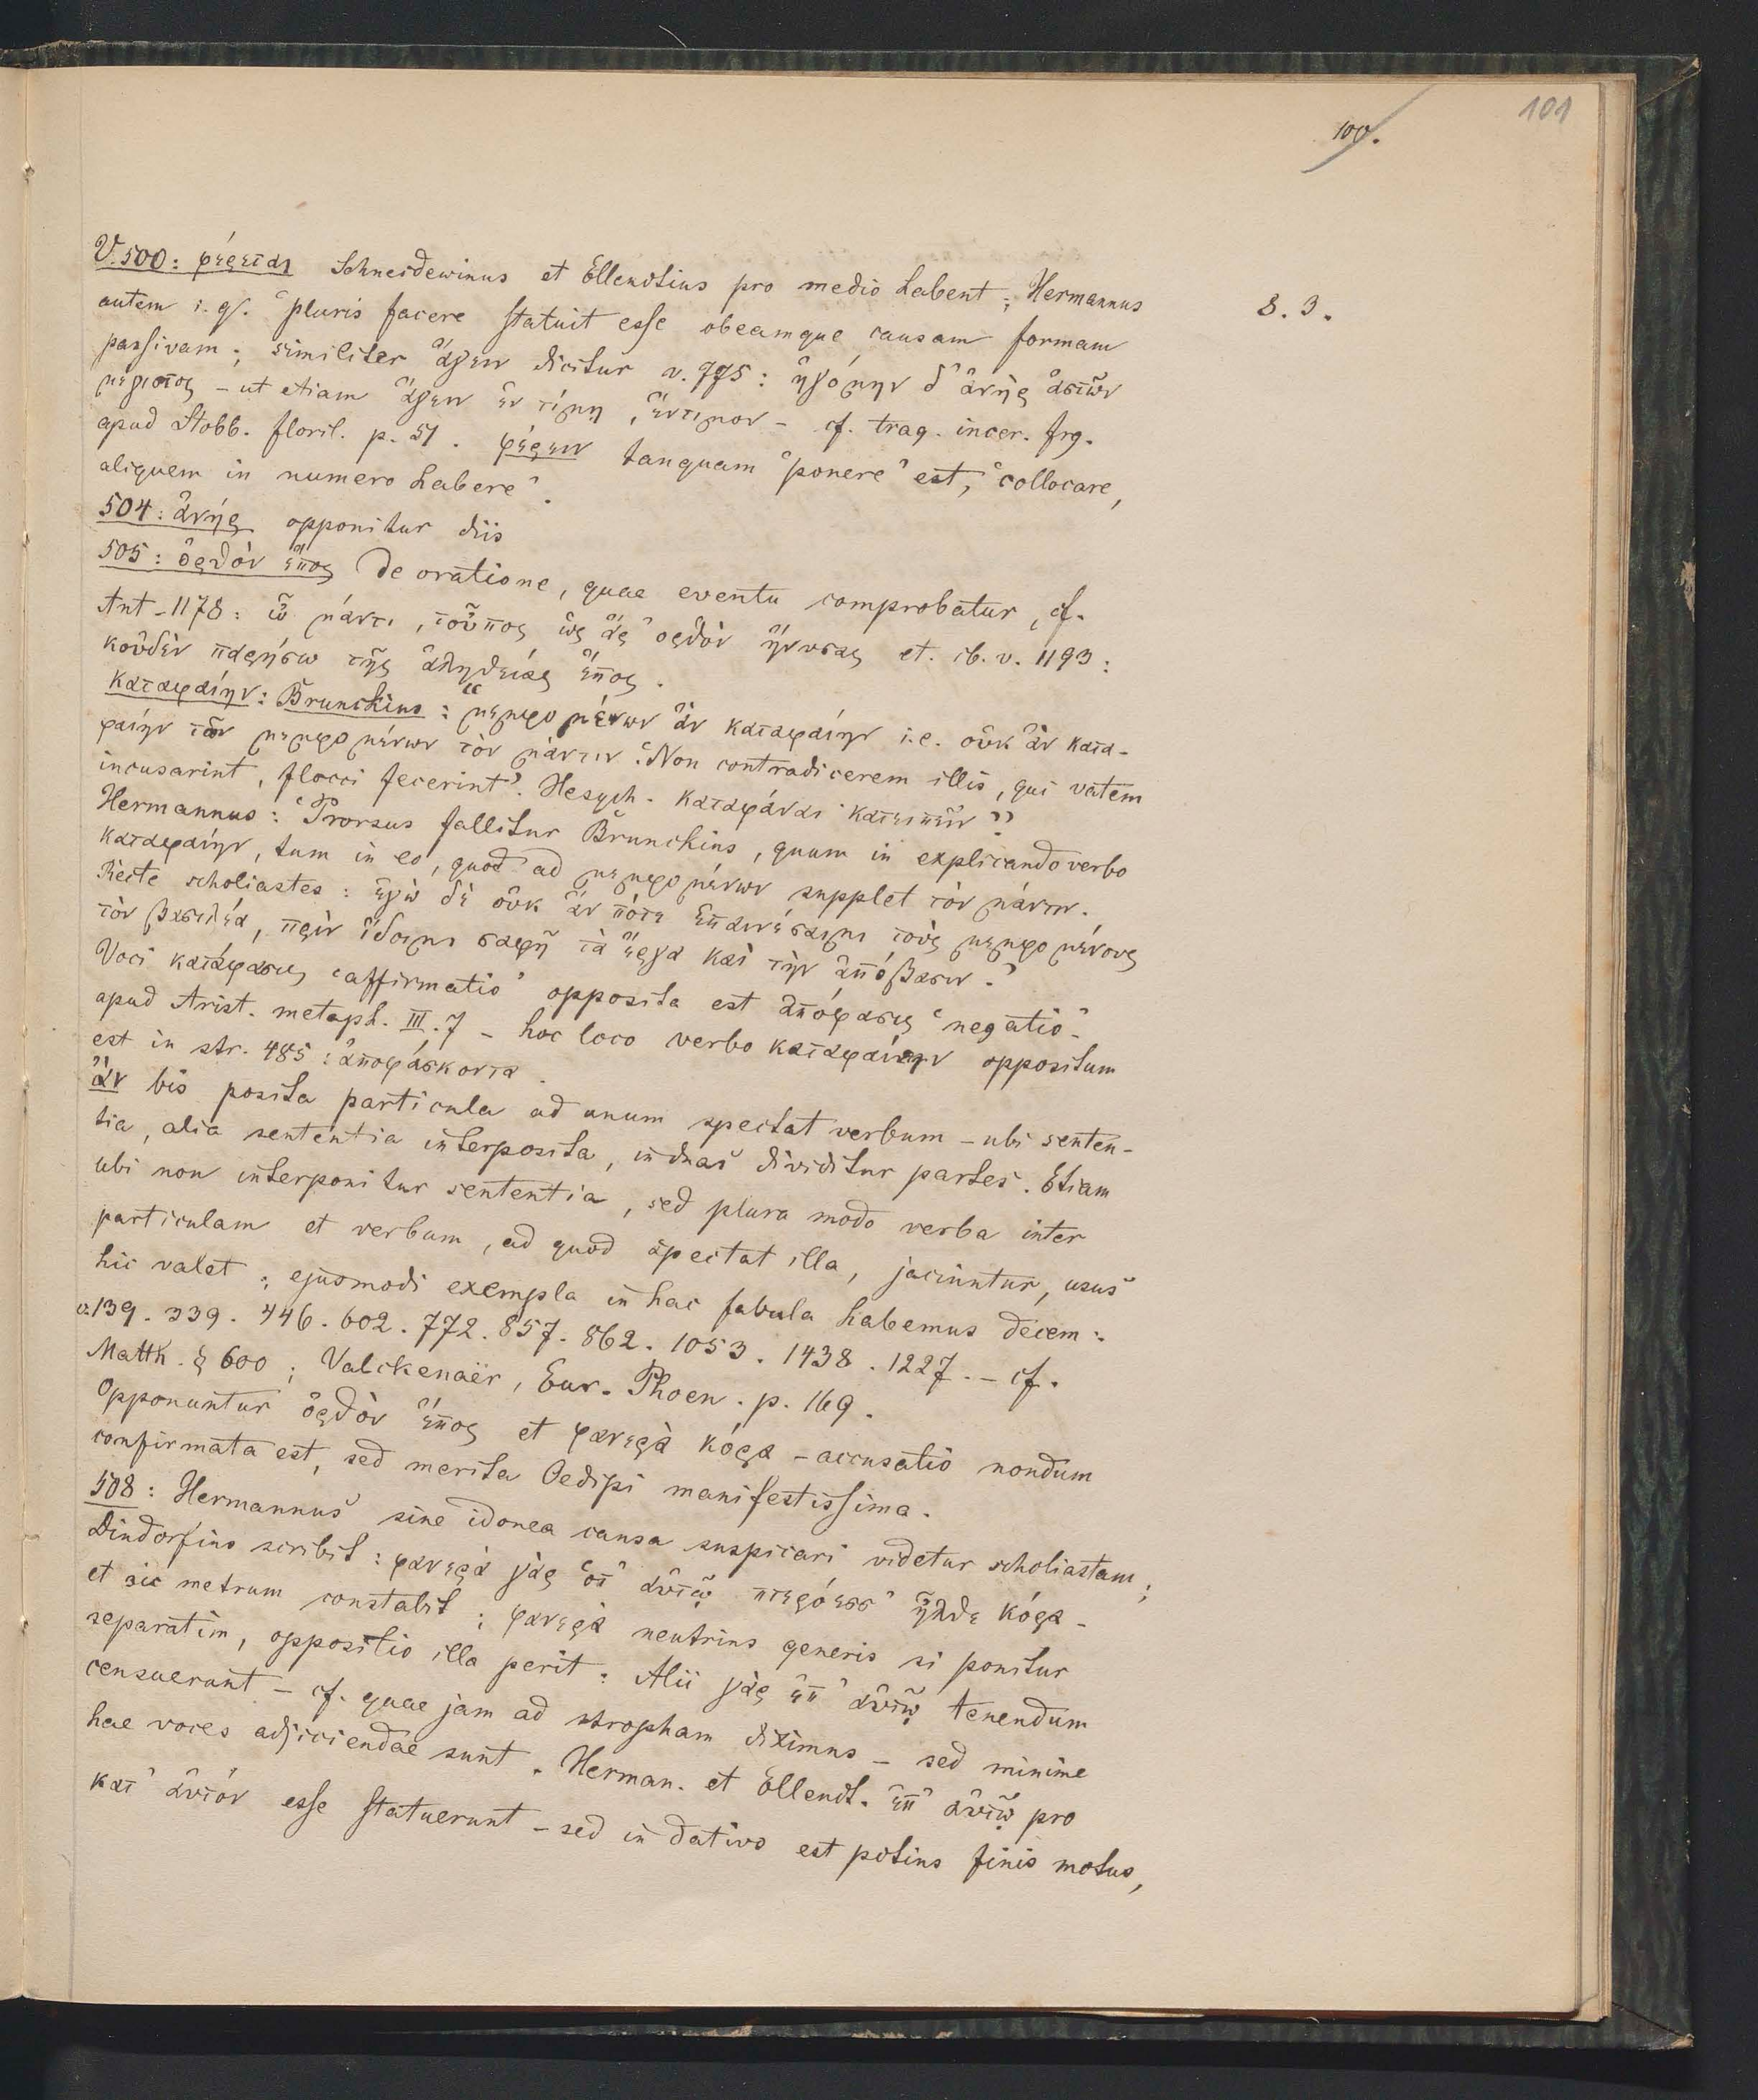 101
100.
V. 500: φέρεται Schneidewinus et Ellendtius pro medio habent; Hermannus
8. 3.
autem i. q. "pluris facere statuit esse obeamque causam formam
passivam; similiter ἄγειν dicitur v. 775: ἠγόμην δ' ἀνὴρ ἀστῶν
μέγιστος – ut etiam ἄγειν ἐν τίμῃ, ἔντιμον – cf. trag. incer. frg.
apud Stobb. floril. p. 51. φέρειν tanquam "ponere" est, "collocare,
aliquem in numero habere".
504: ἀνὴρ opponitur diis
505: ὀρθὸν ἔπος de oratione, quae eventu comprobatur, cf.
Ant. 1178: ὦ μάντι, τοὖπος ὡς ἄρ' ὀρθὸν ἤνυσας et. ib. v. 1193:
κοὐδὲν παρήσω τῆς ἀληθείας ἔπος.
καταφαίην: Brunckius: "μεμφομένων ἂν καταφαίην i. e. οὐκ ἂν κατα-
φαίην τῶν μεμφομένων τὸν μάντιν. 'Non contradicerem illis, qui vatem
incusarint, flocci fecerint'. Hesych. καταφάναι· κατειπεῖν"
Hermannus: 'Prorsus fallitur Brunckius, quum in explicando verbo
καταφαίην, tum in eo, quod ad μεμφομένων supplet τὸν μάντιν.
Recte scholiastes: ἐγὼ δὲ οὐκ ἄν πότε ἐπαινέσαιμι τοὺς μεμφομένους
τὸν βασιλέα, πρὶν ἴδοιμι σαφῆ τὰ ἔργα καὶ τὴν ἀπόβασιν.'
Voci κατάφασις 'affirmatio' opposita est ἀπόφασις 'negatio'
apud Arist. metaph. III. 7 – hoc loco verbo καταφαίην oppositum
est in str. 485: ἀποφάσκοντα.
ἂν bis posita particula ad unum spectat verbum – ubi senten-
tia, alia sententia interposita, in duas dividitur partes. Etiam
ubi non interponitur sententia, sed plura modo verba inter
particulam et verbum, ad quod spectat illa, jaciuntur, usus
hic valet; ejusmodi exempla in hac fabula habemus decem:
v. 139. 339. 446. 602. 772. 857. 862. 1053. 1438. 1227. – cf.
Matth. § 600; Valckenaër, Eur. Phoen. p. 169.
Opponuntur ὀρθὸν ἔπος et φανερὰ κόρα – accusatio nondum
confirmata est, sed merita Oedipi manifestissima.
508: Hermannus sine idonea causa suspicari videtur scholiastam;
Dindorfius scribit: φανερὰ γὰρ ὅτ' αὐτῷ πτερόεσσ' ἦλθε κόρα –
et sic metrum constabit; φανερὰ neutrius generis si ponitur
separatim, oppositio illa perit: Alii γὰρ ἐπ' αὐτῷ tenendum
censuerunt – cf. quae jam ad stropham diximus – sed minime
hae voces adjiciendae sunt. Herman. et Ellendt. ἐπ' αὐτῷ pro
κατ' αὐτόν esse statuerunt – sed in dativo est potius finis motus,